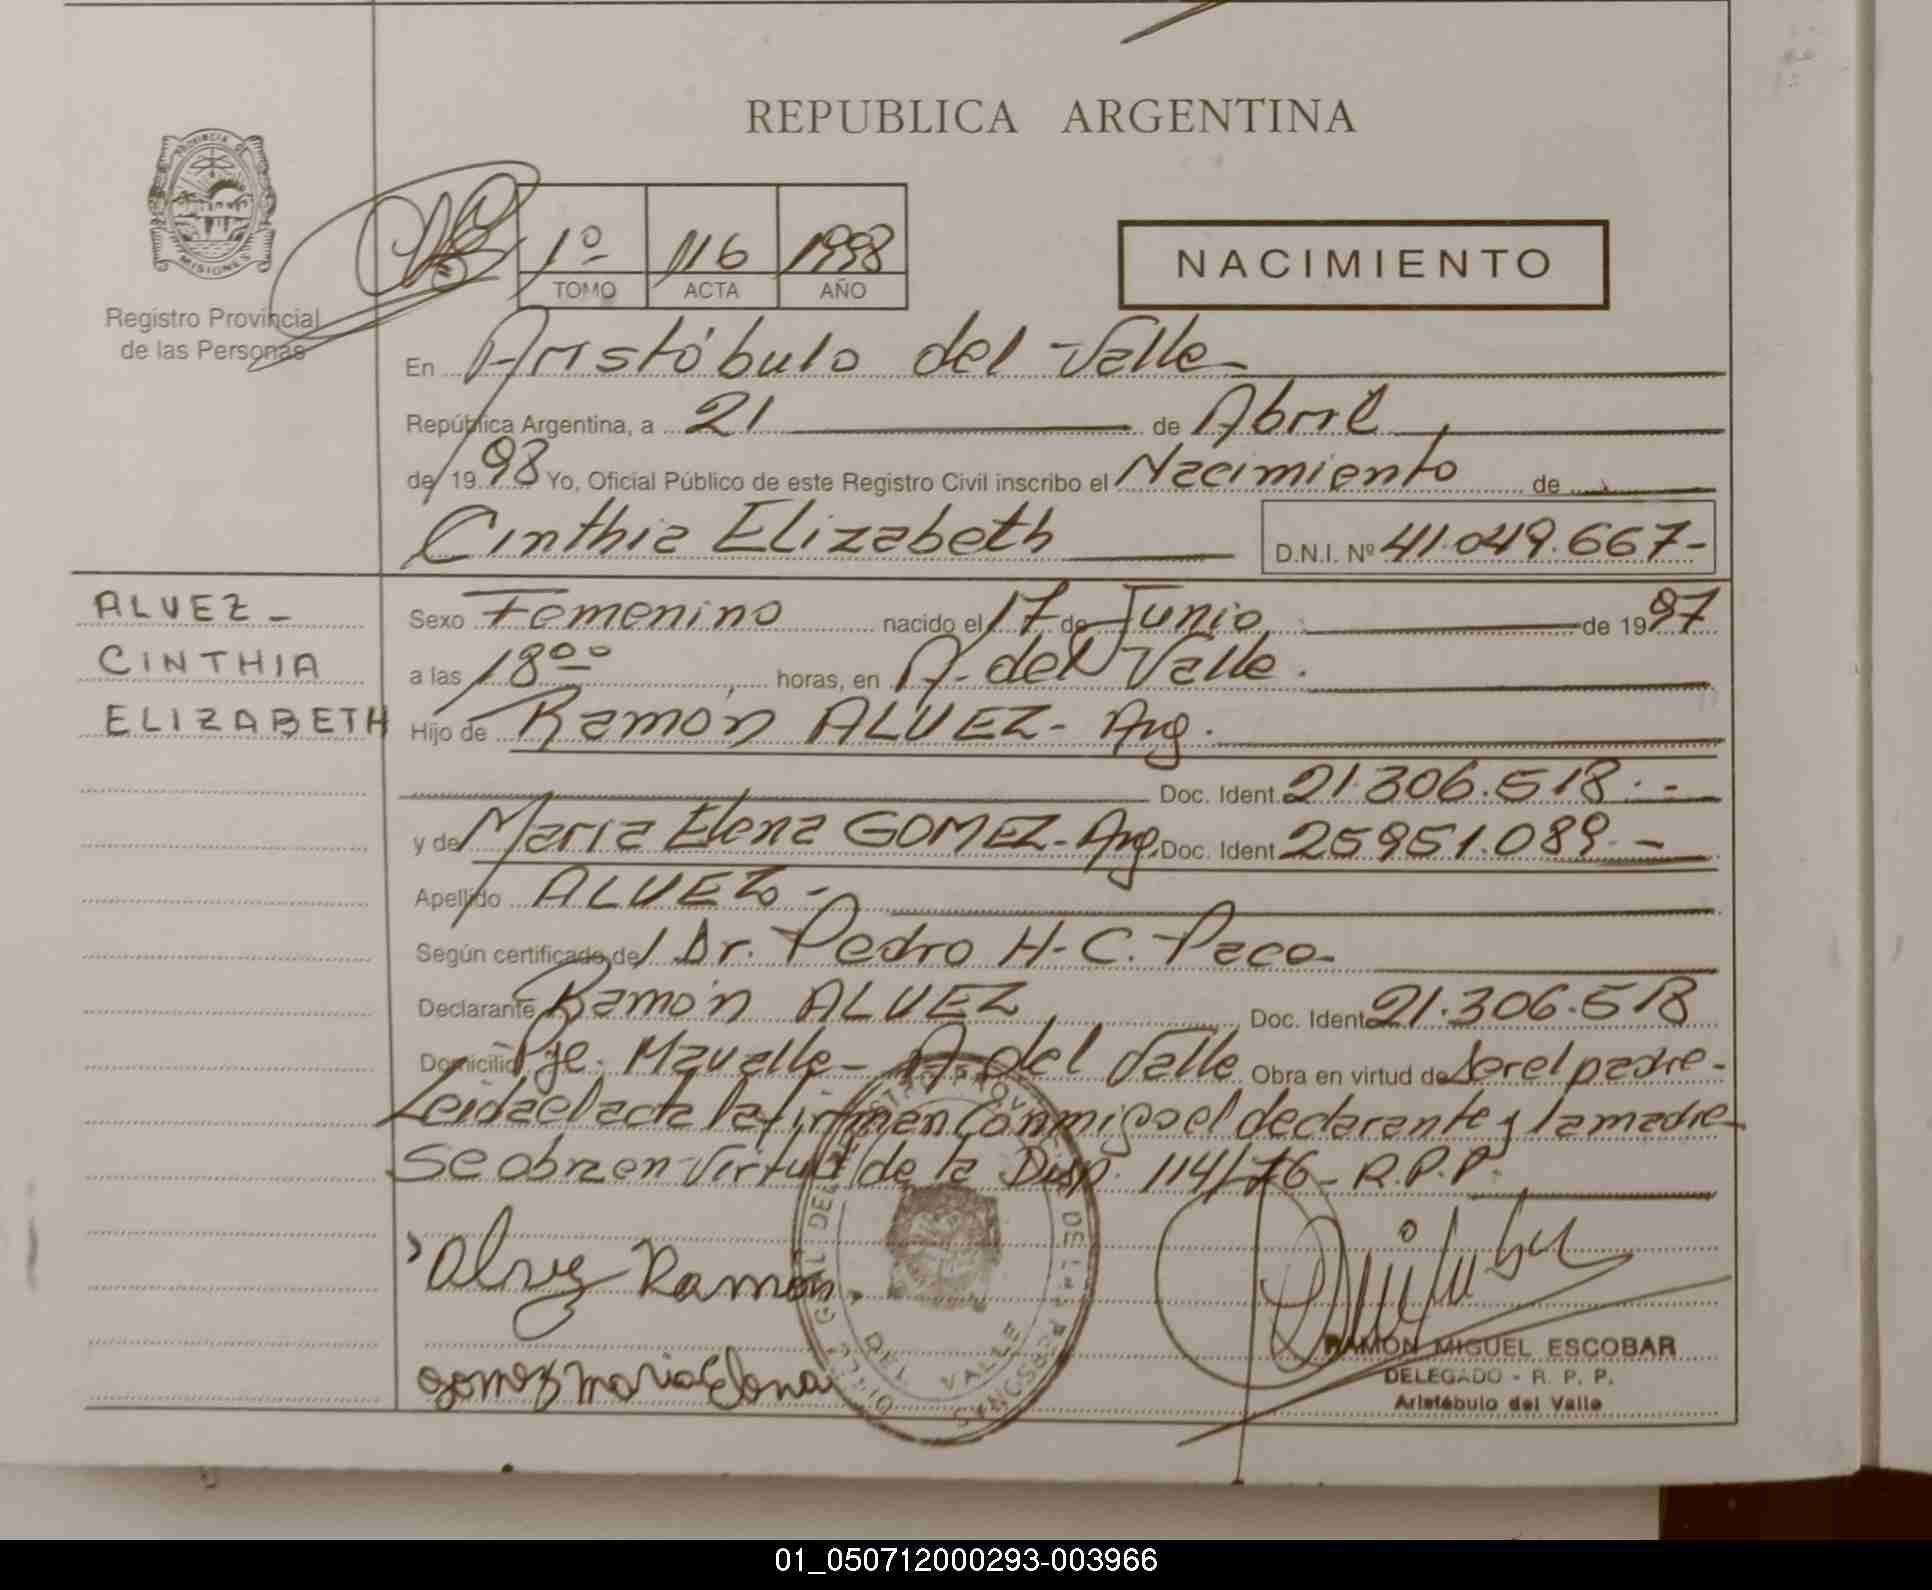 REPUBLICA ARGENTINA
PROVINCIA DE
MISIONES
Registro Provincial
de las Personas
1º 116 1998
TOMO ACTA AÑO
NACIMIENTO
En Aristóbulo del Valle
República Argentina, a 21 de Abril
de 19 98 Yo, Oficial Público de este Registro Civil inscribo el Nacimiento de
Cinthia Elizabeth D.N.I. Nº 41.049.667-
ALVEZ-
CINTHIA
ELIZABETH
Sexo Femenino nacido el 17 de Junio de 19 97
a las 18ºº horas, en A. del Valle.
Hijo de Ramón ALVEZ- Arg.
Doc. Ident. 21.306.518.-
y de María Elena GOMEZ- Arg. Doc. Ident. 25951.089.-
Apellido ALVEZ-
Según certificado de Dr. Pedro H. C. Paco-
Declarante Ramón ALVEZ Doc. Ident. 21.306.518
Domicilio Pje. Mavalle- A del Valle Obra en virtud de Ser el padre-
Leida el acta la firman Conmigo el declarante y la madre-
Se obra en Virtud de la Disp. 114/76- R.P.P.
Alvez Ramon
gomez maria Elena
DEL VALLE
DE LAS PERSONAS
RAMON MIGUEL ESCOBAR
DELEGADO - R. P. P.
Aristóbulo del Valle
01_050712000293-003966